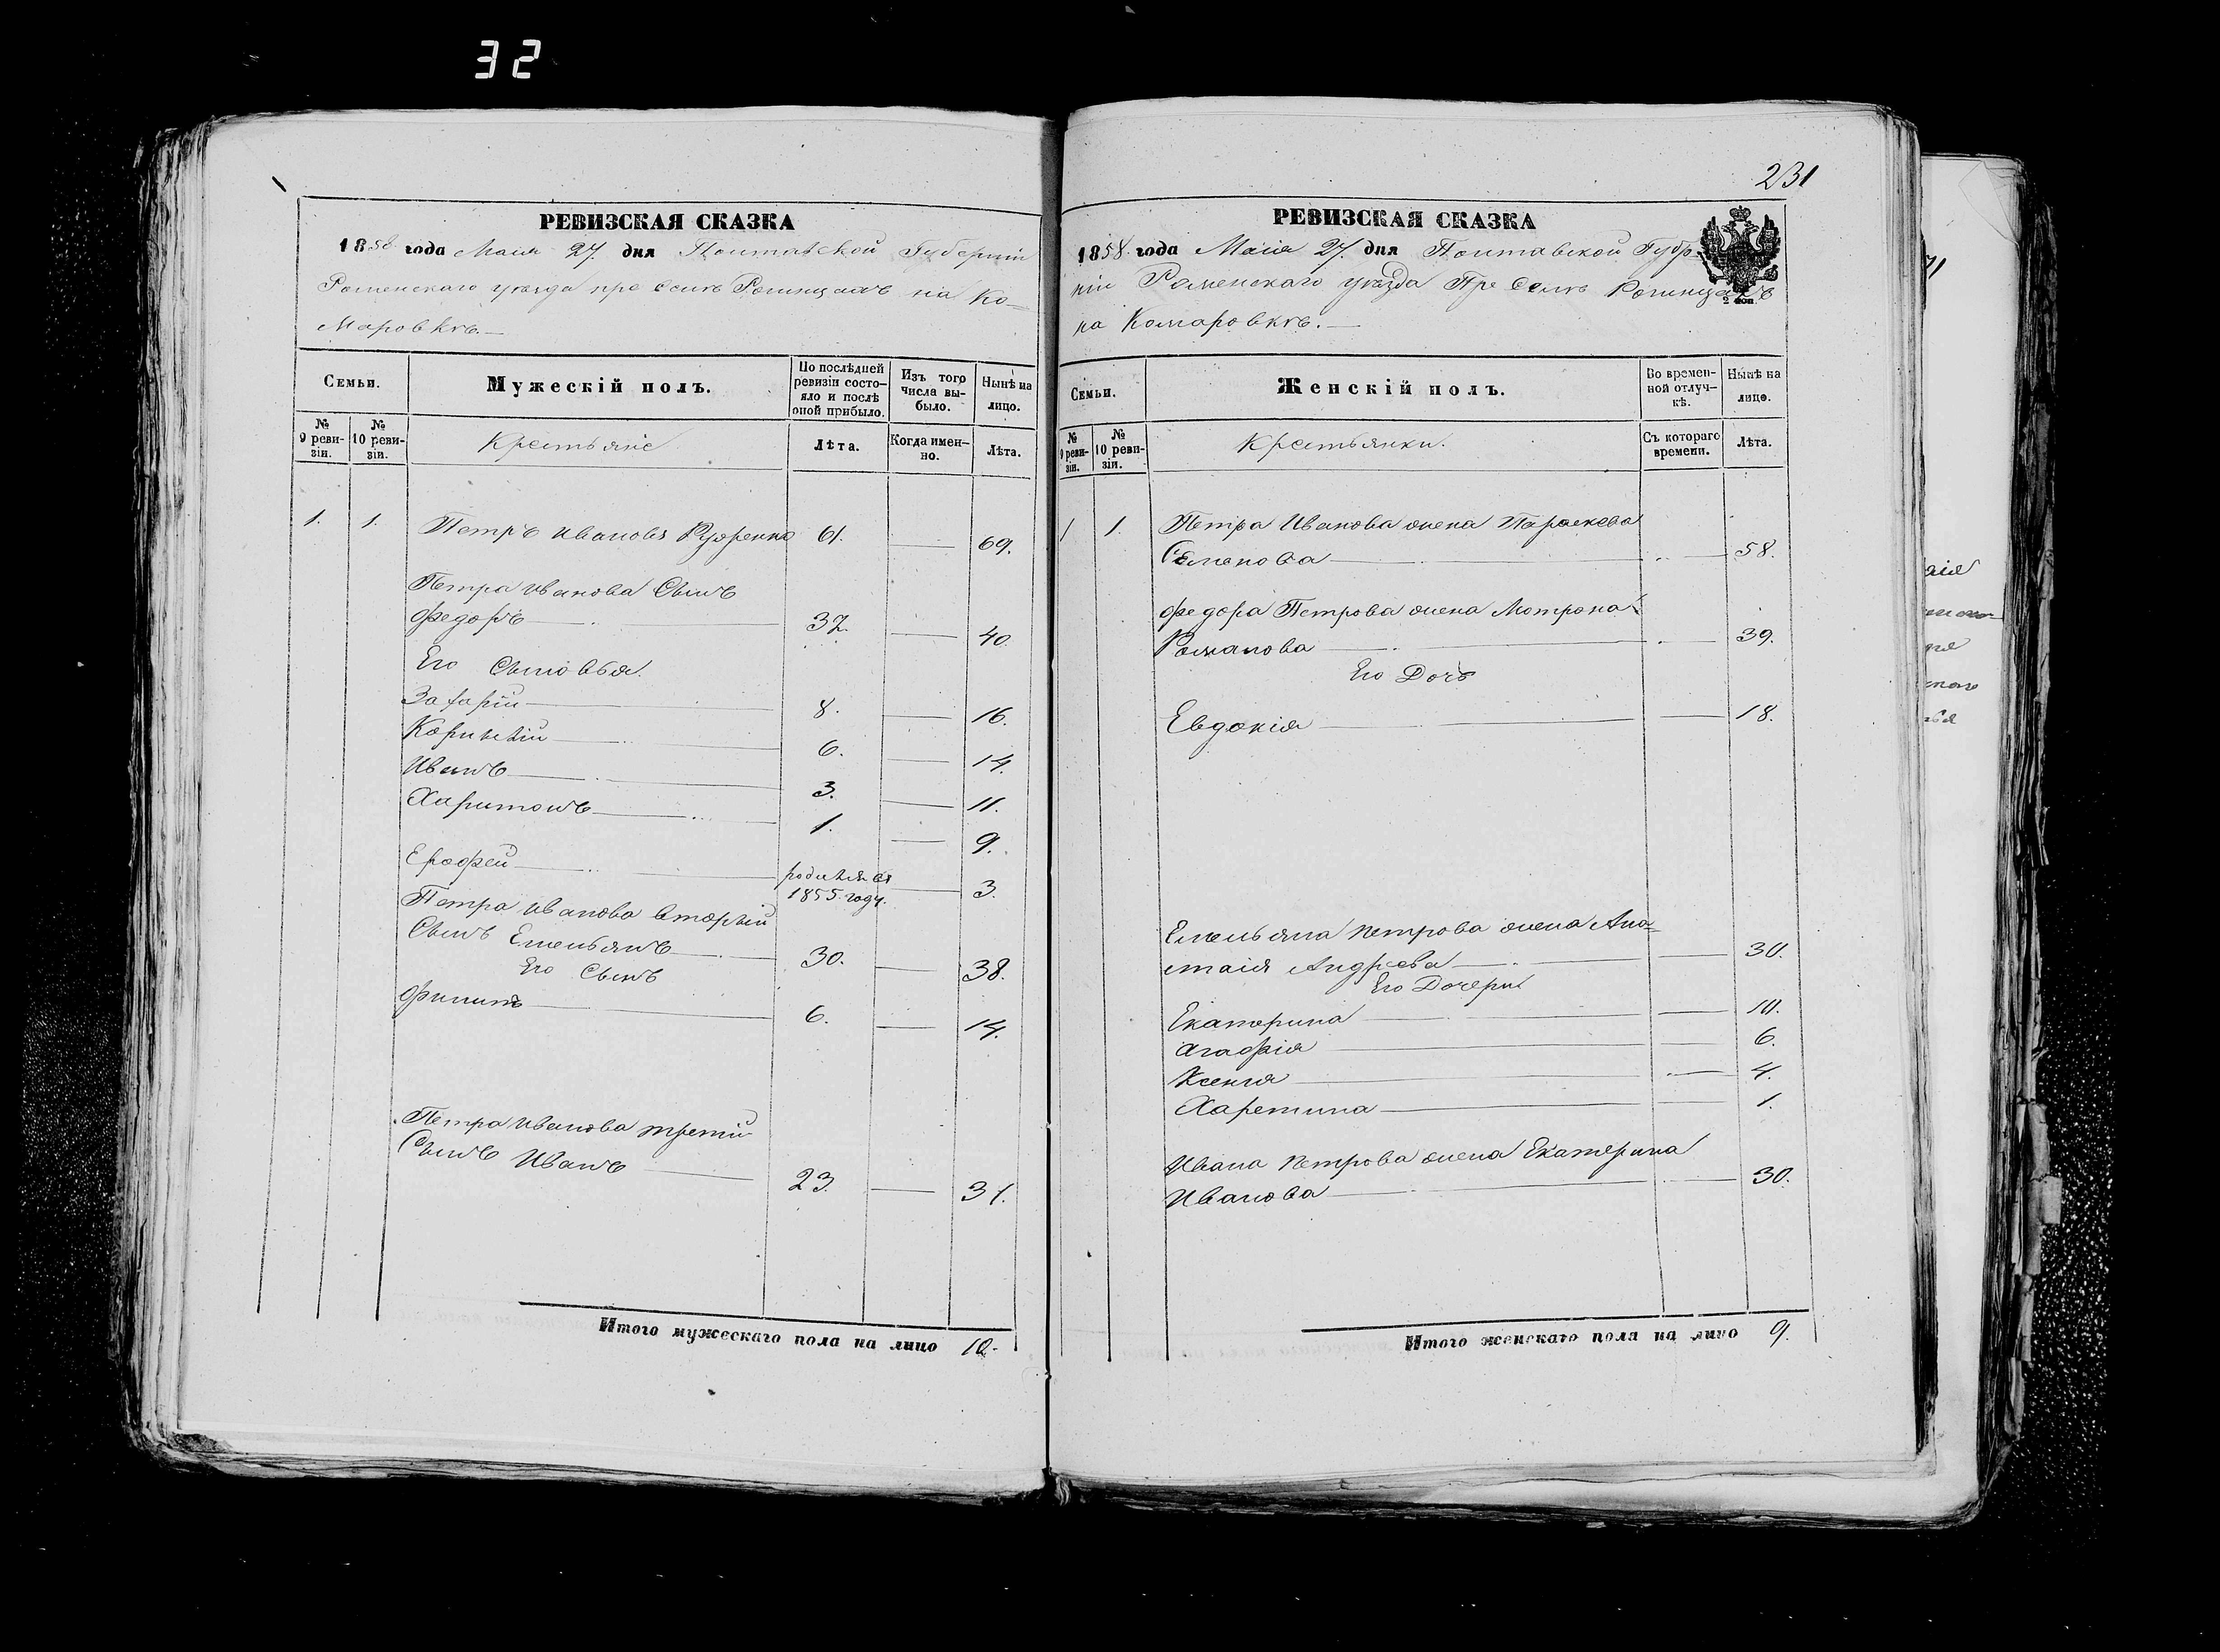 32
231
РЕВИЗСКАЯ СКАЗКА
1858 года Маія 27. дня Полтавской Губерніи
Роменскаго уѣзда при селѣ Рогинцахъ на Ко=
маровкѣ.
Семьи.
Мужескій полъ.
По послѣдней ревизіи состо-
яло и послѣ оной прибыло.
Изъ того числа вы-
было.
Нынѣ на лицо.
№ 9 реви-
зіи.
№ 10 реви-
зіи.
Крестьяне
Лѣта.
Когда имен-
но.
Лѣта.
1. 1. Петръ Ивановъ Руденко 61. 69.
Петра Иванова Сынъ
Федоръ 32. 40.
Его Сыновья.
Захарій 8. 16.
Корнилій 6. 14.
Иванъ 3. 11.
Харитонъ 1. 9.
Ерофей родился 1855 году. 3.
Петра Иванова вторый
Сынъ Емельянъ 30. 38.
Его Сынъ
Филипъ 6. 14.
Петра Иванова третій
Сынъ Иванъ 23. 31.
Итого мужескаго пола на лицо 10.
РЕВИЗСКАЯ СКАЗКА
1858. года Маія 27. дня Полтавской Губер=
ніи Роменскаго уѣзда При Селѣ Рогинцахъ
на Комаровкѣ.
2 коп
Семьи.
Женскій полъ.
Во времен-
ной отлуч-
кѣ.
Нынѣ на лицо.
№ 9 реви-
зіи.
№ 10 реви-
зіи.
Крестьянки.
Съ котораго времени.
Лѣта.
1 1. Петра Иванова жена Параскева
Семенова 58.
Федора Петрова жена Мотрона
Романова 39.
Его Дочь
Евдокія 18.
Емельяна Петрова жена Ана=
стаія Андреева 30.
Его Дочери
Екатерина 10.
Агафія 6.
Ксенія 4.
Харетина 1.
Ивана Петрова жена Екатерина
Иванова 30.
Итого женскаго пола на лицо 9.